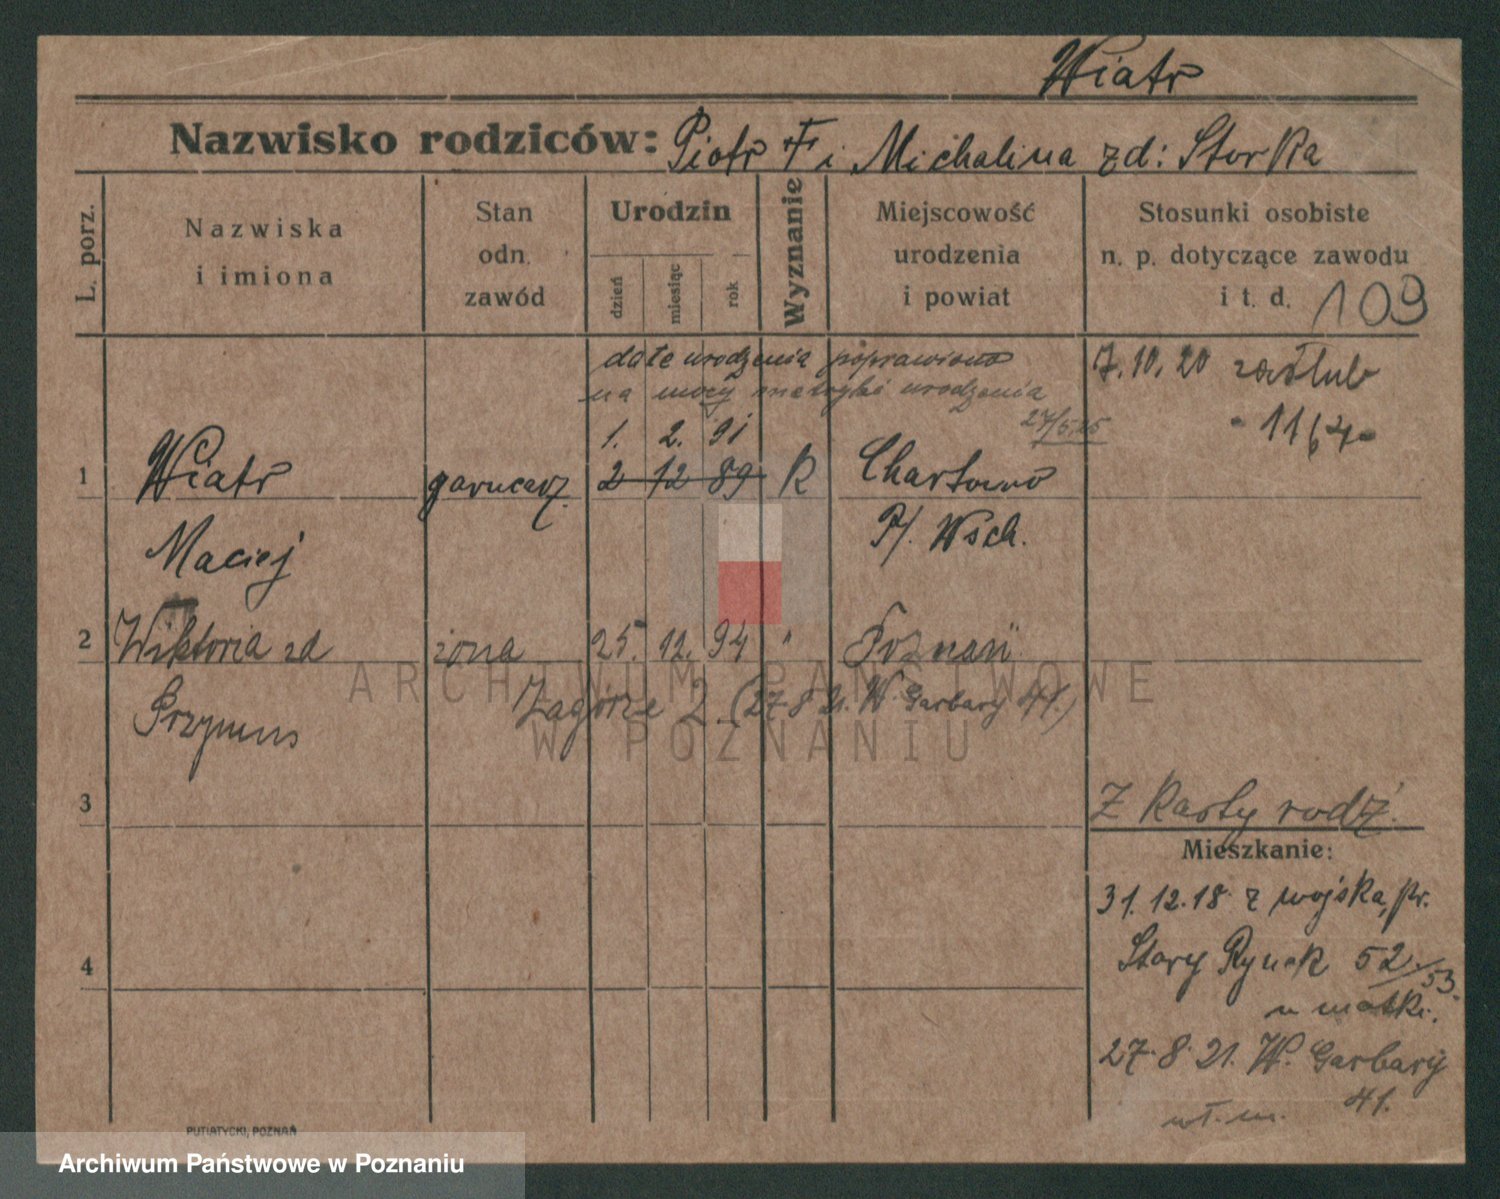 Wiatr
Nazwisko rodziców: Piotr † i Michalina zd: Storka
L. porz.
Nazwiska
i imiona
Stan
odn.
zawód
Urodzin
dzień
miesiąc
rok
Wyznanie
Miejscowość
urodzenia
i powiat
Stosunki osobiste
n. p. dotyczące zawodu
i t. d. 109
date urodzenia poprawiono
na mocy metryki urodzenia
27/5.25
7. 10. 20 zaślub
- 1164 -
1. 2. 91
1 Wiatr garncarz. 2 12 89 R Chartowo
Maciej P/. Wsch.
2 Wiktoria zd żona 25. 12. 94 " Poznań
Przymus Zagórze 2. (27 8 21. W. Garbary 41.)
ARCHIWUM PAŃSTWOWE
W POZNANIU
3
Z Karty rodz.
Mieszkanie:
31. 12. 18. z wojska, pr.
4 Stary Rynek 52/53.
u matki.
27. 8. 21. W. Garbary
41.
wł. m.
PUTIATYCKI, POZNAŃ
Archiwum Państwowe w Poznaniu